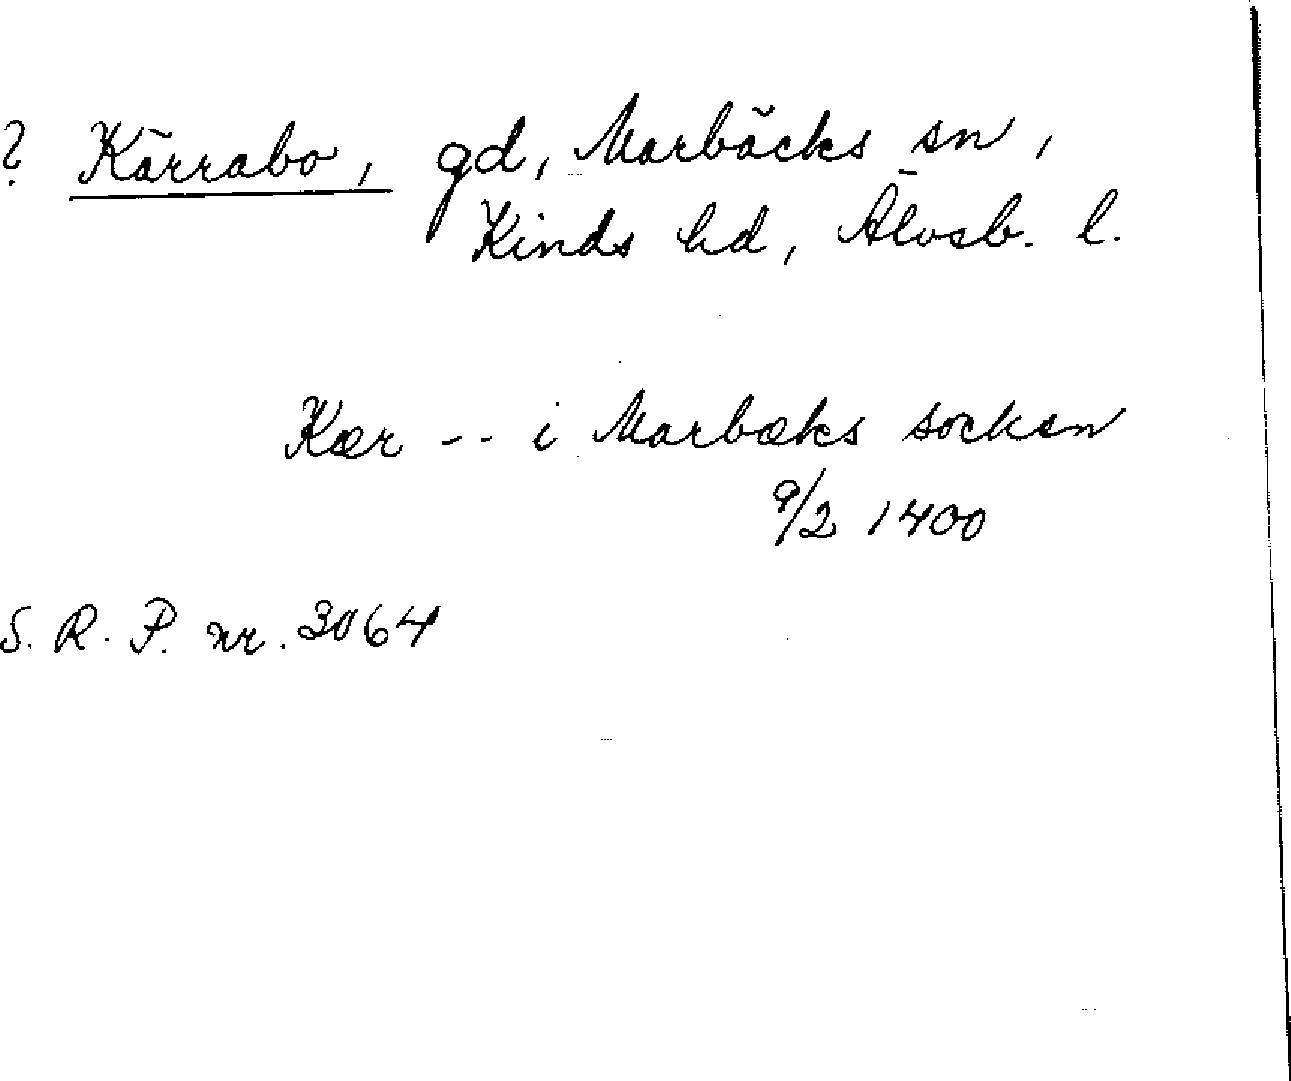 ? Kärrabo, gd, Marbäcks sn,
Kinds hd, Älvsb. l.
Kær -- i Marbæks socken
9/2 1400
S. R. P. nr. 3064